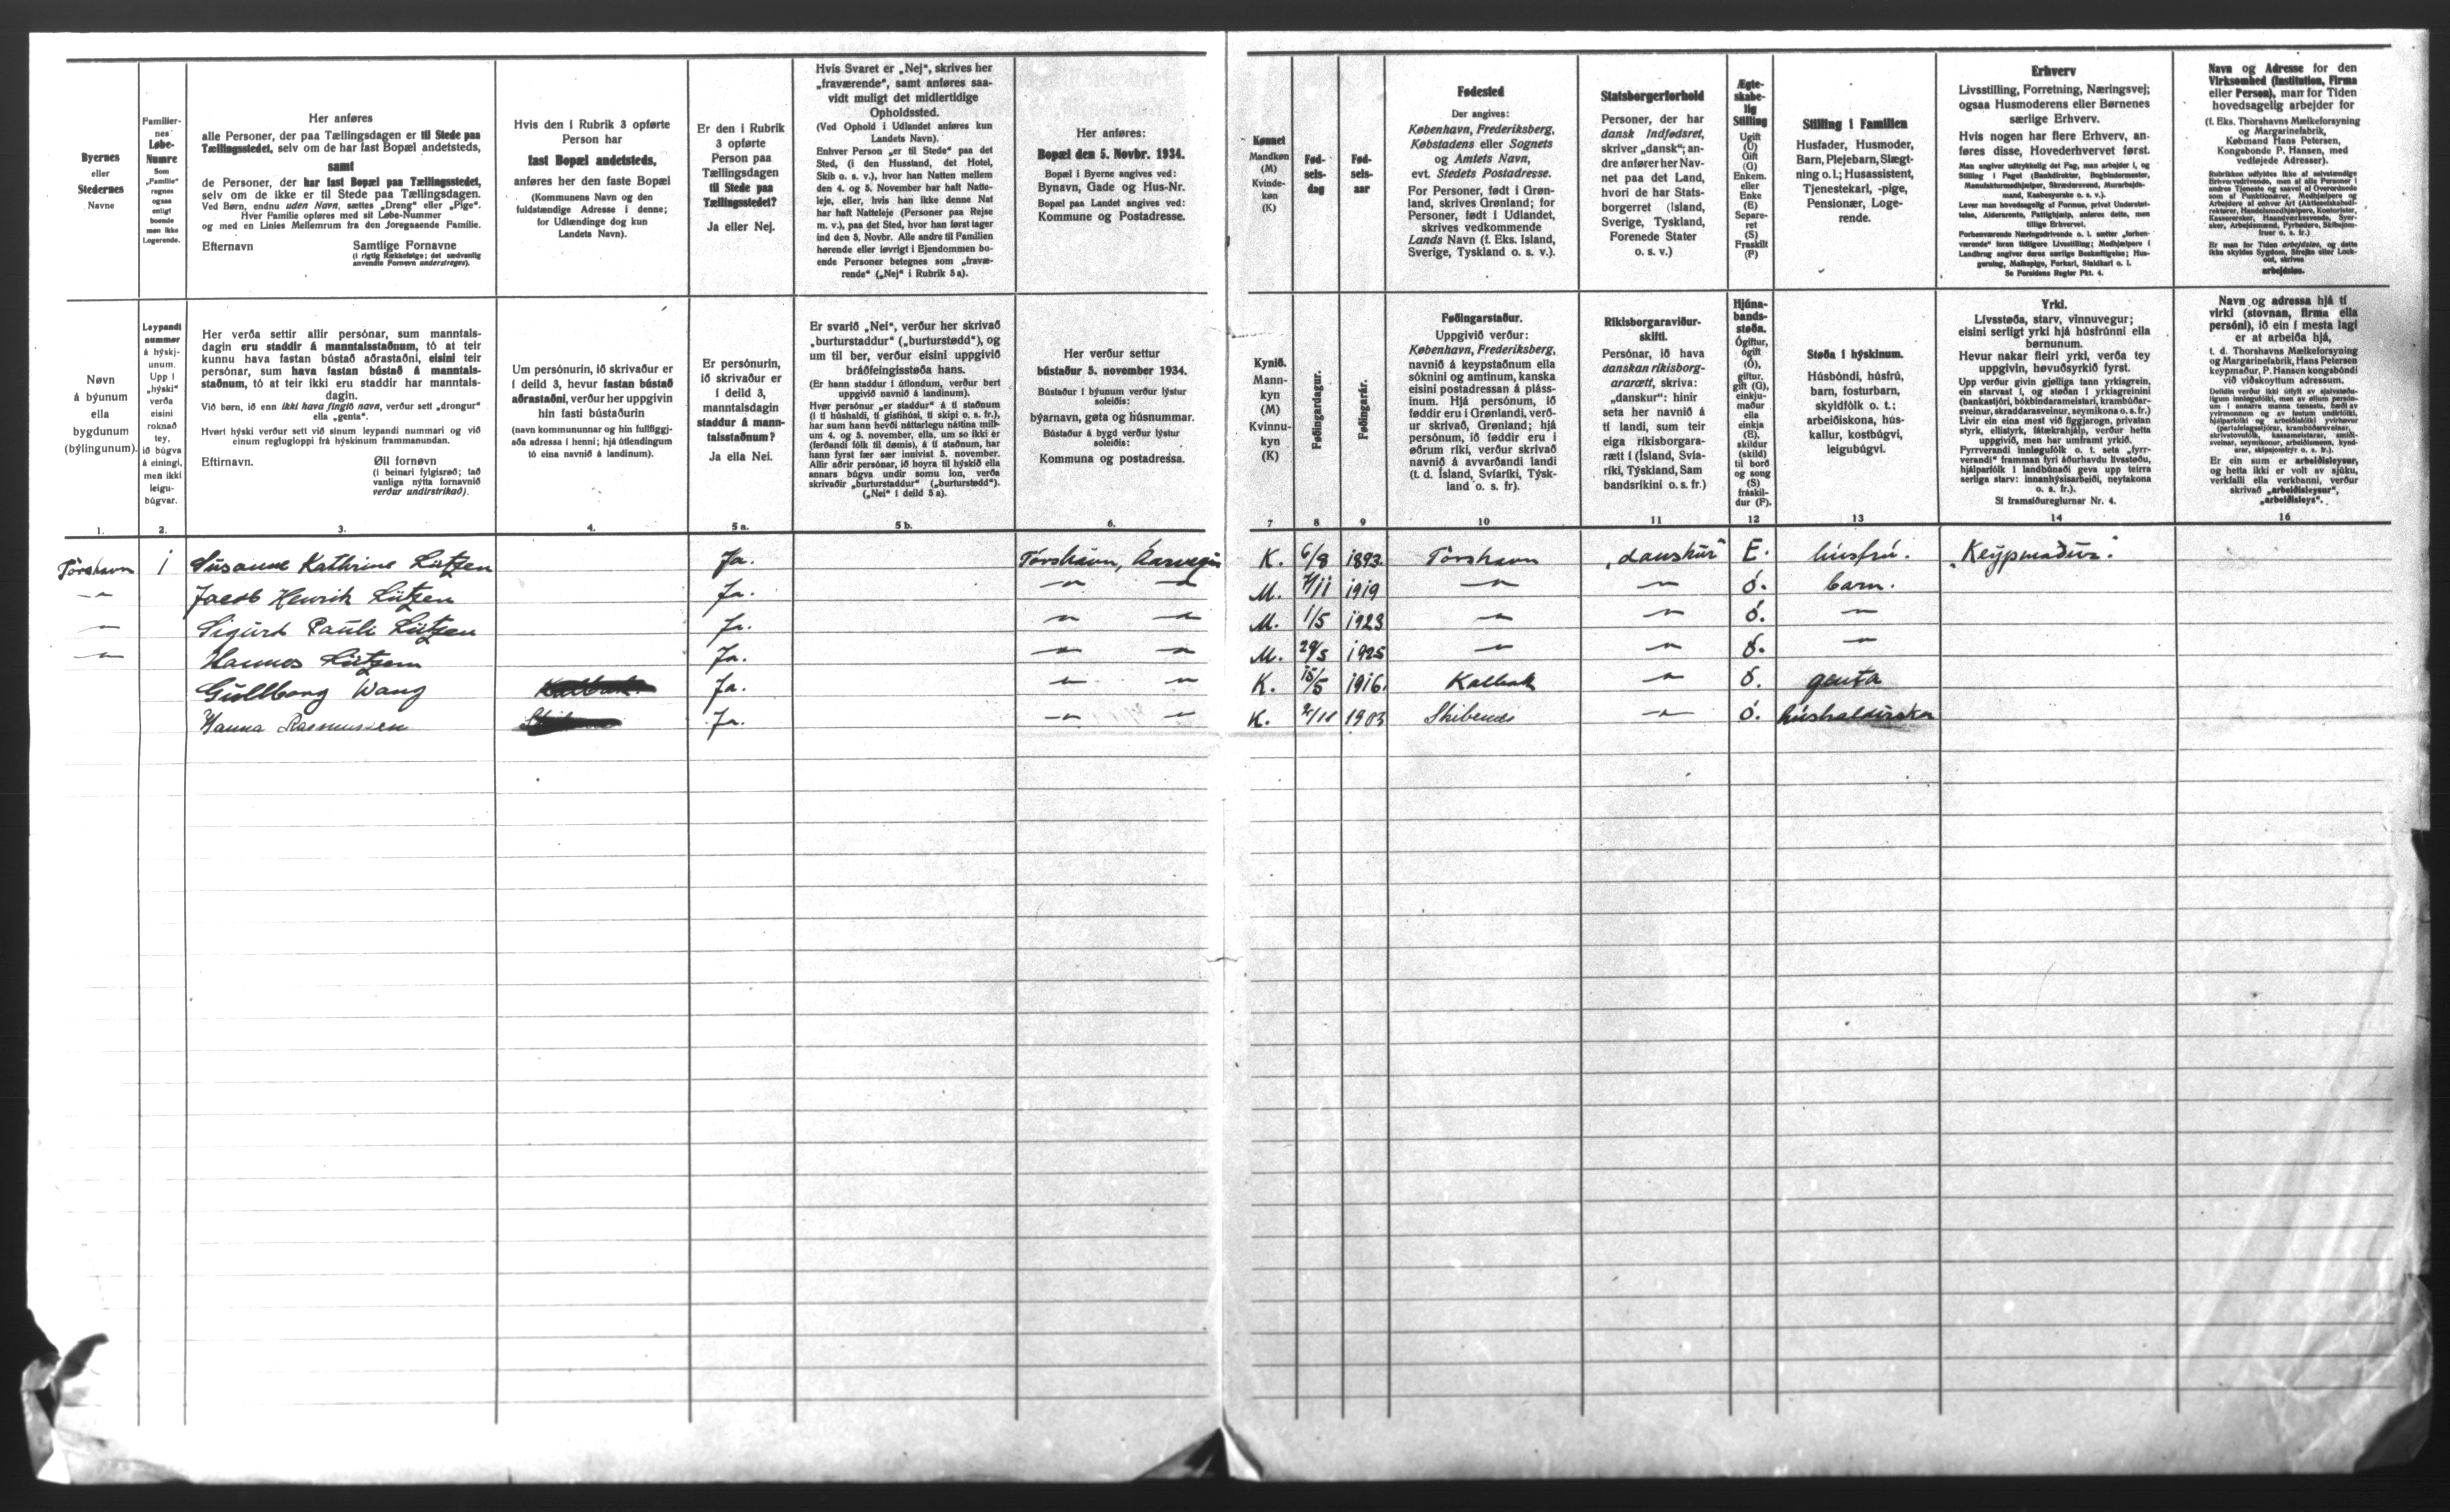 Byernes
eller
Stedernes
Navne
Familier-
nes
Løbe-
Numre
Som
„Familie“
regnes
ogsaa
enligt
boende
men ikke
Logerende.
Her anføres
alle Personer, der paa Tællingsdagen er til Stede paa
Tællingsstedet, selv om de har fast Bopæl andetsteds,
samt
de Personer, der har fast Bopæl paa Tællingsstedet,
selv om de ikke er til Stede paa Tællingsdagen.
Ved Børn, endnu uden Navn, sættes „Dreng“ eller „Pige“.
Hver Familie opføres med sit Løbe-Nummer
og med en Linies Mellemrum fra den foregaaende Familie.
Efternavn Samtlige Fornavne
(i rigtig Rækkefølge; det sædvanlig
anvendte Fornavn understreges).
Hvis den i Rubrik 3 opførte
Person har
fast Bopæl andetsteds,
anføres her den faste Bopæl
(Kommunens Navn og den
fuldstændige Adresse i denne;
for Udlændinge dog kun
Landets Navn).
Er den i Rubrik
3 opførte
Person paa
Tællingsdagen
til Stede paa
Tællingsstedet?
Ja eller Nej.
Hvis Svaret er „Nej“, skrives her
„fraværende“, samt anføres saa-
vidt muligt det midlertidige
Opholdssted.
(Ved Ophold i Udlandet anføres kun
Landets Navn).
Enhver Person „er til Stede“ paa det
Sted, (i den Husstand, det Hotel,
Skib o. s. v.), hvor han Natten mellem
den 4. og 5. November har haft Natte-
leje, eller, hvis han ikke denne Nat
har haft Natteleje (Personer paa Rejse
m. v.), paa det Sted, hvor han først tager
ind den 5. Novbr. Alle andre til Familien
hørende eller iøvrigt i Ejendommen bo-
ende Personer betegnes som „fravæ-
rende“ („Nej“ i Rubrik 5 a).
Her anføres:
Bopæl den 5. Novbr. 1934.
Bopæl i Byerne angives ved:
Bynavn, Gade og Hus-Nr.
Bopæl paa Landet angives ved:
Kommune og Postadresse.
Kønnet
Mandkøn
(M)
Kvinde-
køn
(K)
Fød-
sels-
dag
Fød-
sels-
aar
Fødested
Der angives:
København, Frederiksberg,
Købstadens eller Sognets
og Amtets Navn,
evt. Stedets Postadresse.
For Personer, født i Grøn-
land, skrives Grønland; for
Personer, født i Udlandet,
skrives vedkommende
Lands Navn (f. Eks. Island,
Sverige, Tyskland o. s. v.).
Statsborgerforhold
Personer, der har
dansk Indfødsret,
skriver „dansk“; an-
dre anfører her Nav-
net paa det Land,
hvori de har Stats-
borgerret (Island,
Sverige, Tyskland,
Forenede Stater
o. s. v.)
Ægte-
skabe-
lig
Stilling
Ugift
(U)
Gift
(G)
Enkem.
eller
Enke
(E)
Separe-
ret
(S)
Fraskilt
(F)
Stilling i Familien
Husfader, Husmoder,
Barn, Plejebarn, Slægt-
ning o.l.; Husassistent,
Tjenestekarl, -pige,
Pensionær, Loge-
rende.
Erhverv
Livsstilling, Forretning, Næringsvej;
ogsaa Husmoderens eller Børnenes
særlige Erhverv.
Hvis nogen har flere Erhverv, an-
føres disse, Hovederhvervet først.
Man angiver udtrykkelig det Fag, man arbejder i, og
Stilling i Faget (Bankdirektør, Bogbindermester,
Manufakturmedhjælper, Skrædersvend, Murarbejds-
mand, Kasbesyerske o. s. v.).
Lever man hovedsagelig af Formue, privat Understøt-
telse, Aldersrente, Fattighjælp, anføres dette, men
tillige Erhvervet.
Se Forsidens Regler Pkt. 4.
Navn og Adresse for den
Virksomhed (Institution, Firma
eller Person), man for Tiden
hovedsagelig arbejder for
(f. Eks. Thorshavns Mælkeforsyning
og Margarinefabrik,
Købmand Hans Petersen,
Kongsbonde P. Hansen, med
vedføjede Adresser).
Er man for Tiden arbejdsløs, og dette
ikke skyldes Sygdom, Strejke eller Lock-
out, skrives
arbejdsløs.
Nøvn
á býunum
ella
bygdunum
(býlingunum).
Leypandi
nummør
á hýskj-
unum.
Upp í
„hýski“
verða
eisini
roknað
tey,
ið búgva
á einingi,
men ikki
leigu-
búgvar.
Her verða settir allir persónar, sum manntals-
dagin eru staddir á manntalsstaðnum, tó at teir
kunnu hava fastan bústað aðrastaðni, eisini teir
persónar, sum hava fastan bústað á manntals-
staðnum, tó at teir ikki eru staddir har manntals-
dagin.
Við børn, ið enn ikki hava fingið navn, verður sett „drongur“
ella „genta“.
Hvørt hýski verður sett við sínum leypandi nummari og við
einum reglugloppi frá hýskinum frammanundan.
Eftirnavn. Øll fornøvn
(í beinari fylgisrøð; tað
vanliga nýtta fornavnið
verður undirstrikað).
Um persónurin, ið skrivaður er
í deild 3, hevur fastan bústað
aðrastaðni, verður her uppgivin
hin fasti bústaðurin
(navn kommununnar og hin fullfíggj-
aða adressa í henni; hjá útlendingum
tó eina navnið á landinum).
Er persónurin,
ið skrivaður er
í deild 3,
manntalsdagin
staddur á mann-
talsstaðnum?
Ja ella Nei.
Er svarið „Nei“, verður her skrivað
„burturstaddur“ („burturstødd“), og
um til ber, verður eisini uppgivið
bráðfeingisstøða hans.
(Er hann staddur í útlondum, verður bert
uppgivið navnið á landinum).
Hvør persónur „er staddur“ á tí staðnum
(í tí húshaldi, tí gistihúsi, tí skipi o. s. fr.),
har sum hann hevði náttarlegu náttina mill-
um 4. og 5. november, ella, um so ikki er
(ferðandi fólk til dømis), á tí staðnum, har
hann fyrst fær sær innivist 5. november.
Allir aðrir persónar, ið hoyra til hýskið ella
annars búgva undir somu lon, verða
skrivaðir „burturstaddur“ („burturstødd“).
(„Nei“ í deild 5 a).
Her verður settur
bústaður 5. november 1934.
Bústaður í býunum verður lýstur
soleiðis:
býarnavn, gøta og húsnummar.
Bústaður á bygd verður lýstur
soleiðis:
Kommuna og postadressa.
Kynið.
Mann-
kyn
(M)
Kvinnu-
kyn
(K)
Føðingardagur.
Føðingarár.
Føðingarstaður.
Uppgivið verður:
København, Frederiksberg,
navnið á keypstaðnum ella
sóknini og amtinum, kanska
eisini postadressan á pláss-
inum. Hjá persónum, ið
føddir eru í Grønlandi, verð-
ur skrivað, Grønland; hjá
persónum, ið føddir eru í
øðrum ríki, verður skrivað
navnið á avvarðandi landi
(t. d. Ísland, Svíaríki, Týsk-
land o. s. fr).
Ríkisborgaraviður-
skifti.
Persónar, ið hava
danskan ríkisborg-
ararætt, skriva:
„danskur“: hinir
seta her navnið á
tí landi, sum teir
eiga ríkisborgara-
rætt í (Ísland, Svía-
ríki, Týskland, Sam
bandsríkini o. s. fr.)
Hjúna-
bands-
støða.
Ógiftur,
ógift
(Ó),
giftur,
gift (G),
einkju-
maður
ella
einkja
(E),
skildur
(skild)
til borð
og song
(S)
fráskil-
dur (F).
Støða í hýskinum.
Húsbóndi, húsfrú,
barn, fosturbarn,
skyldfólk o. t.;
arbeiðiskona, hús-
kallur, kostbúgvi,
leigubúgvi.
Yrki.
Lívsstøða, starv, vinnuvegur;
eisini serligt yrki hjá húsfrúnni ella
børnunum.
Hevur nakar fleiri yrki, verða tey
uppgivin, høvuðsyrkið fyrst.
Upp verður givin gjølliga tann yrkisgrein,
ein starvast í, og støðan í yrkisgreinini
(bankastjóri, bókbindarameistari, krambúðar-
sveinur, skraddarasveinur, seymikona o. s. fr.)
Livir ein eina mest við fíggjarogn, privatan
styrk, ellistyrk, fátækrahjálp, verður hetta
uppgivið, men har umframt yrkið.
Pyrrverandi innløgufólk o. t. seta „fyrr-
verandi“ framman fyri áðurhavdu lívsstøðu,
hjálparfólk í landbúnaði geva upp teirra
serliga starv: innanhýsisarbeiði, neytakona
o. s. fr.).
Sí framsíðureglurnar Nr. 4.
Navn og adressa hjá tí
virki (stovnan, firma ella
persóni), ið ein í mesta lagi
er at arbeiða hjá,
t. d. Thorshavns Mælkeforsyning
og Margarinefabrik, Hans Petersen
keypmaður, P. Hansen kongsbóndi
við viðskoyttum adressum.
Er ein sum er arbeiðsleysur,
og hetta ikki er volt av sjúku,
verkfalli ella verkbanni, verður
skrivað „arbeiðsleysur“,
„arbeiðsleys“.
1. 2. 3. 4. 5 a. 5 b. 6. 7 8 9 10 11 12 13 14 16
Tórshavn 1 Susanne Kathrine Lützen Ja. Tórshavn, Aarvegin K. 6/8 1893. Tórshavn „danskur“ E. húsfrú. „Keypmaður.“
–"– Jacob Henrik Lützen Ja. –"– –"– M. 7/11 1919 –"– –"– Ó. barn.
–"– Sigurd Pauli Lützen Ja. –"– –"– M. 1/5 1923 –"– –"– Ó. –"–
–"– Hannes Lützen Ja. –"– –"– M. 29/5 1925 –"– –"– Ó. –"–
Gullborg Wang Ja. –"– –"– K. 15/5 1916. Kalbak –"– Ó. genta
Hanna Rasmussen Ja. –"– –"– K. 2/11 1903 –"– Ó. húshaldirska